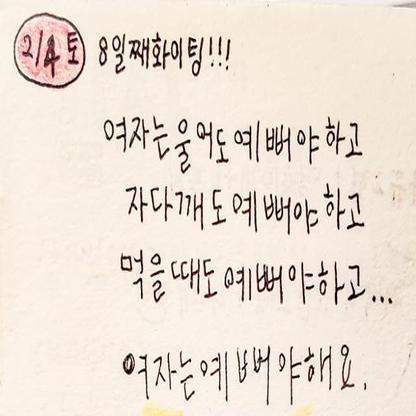 2/4 토 8일째화이팅!!!
여자는울어도예뻐야하고
자다깨도예뻐야하고
먹을때도예뻐야하고...
여자는예뻐야해요.